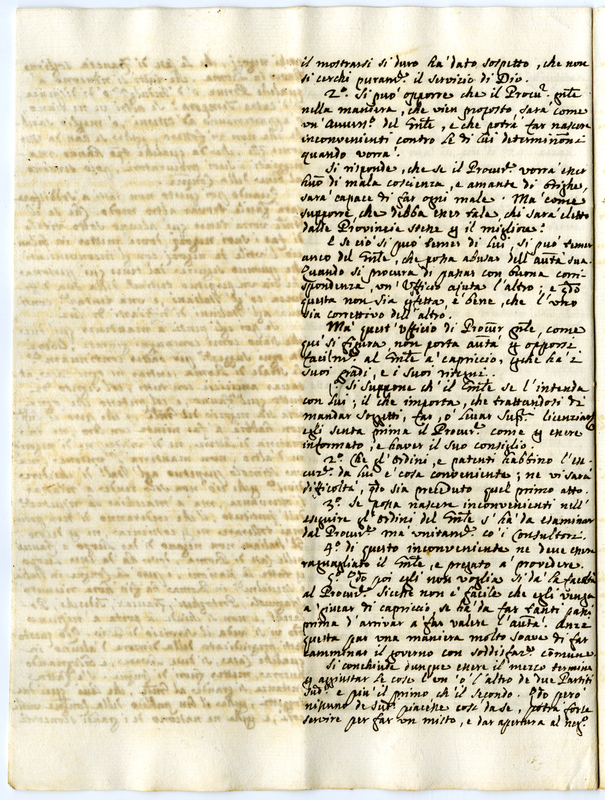 il mostrarsi sì duro ha' dato sospetto, che non
si cerchi puram.te il servicio di Dio.
2.° Si può opporre che il Procur.r gn̄le
nella maniera, che vien proposto sarà come
un' del Gn̄le, e che potrà far nascere
inconvenienti contro le di lui determinōni
quando vorrà.
Si risponde, che se il Procur.r vorrà esser
huō di mala coscienza, e amante di brighe,
sarà capace di far ogni male. Ma' come
supporre, che debba esser tale, chi sarà eletto
dalle Provincie per il migliore?
E se ciò si può temer di lui, si può temer
anco del Gn̄le, che possa abusar dell' autà sua.
Quando si procura di passar con buona corri-
spondenza, un' Ufficio ajuta l'altro; e qdo
questa non sia pfetta, è bene, che l'uno
sia correttivo dell' altro.
Ma' quest' Ufficio di Procur gn̄le, come
qui si figura, non porta autà p opporsi
facilm.te al Gn̄le a' capriccio, pche ha' i
suoi gradi, e i suoi ritegni.
1.° Si suppone ch' il Gn̄le se l'intenda
con lui; il che importa, che trattandosi di
mandar soggetti, far, ò levar Sup.ri licenziar
egli senta prima il Procur.r come p essere
informato, e haver il suo consiglio.
2.° Che gl'Ordini, e patenti habbino l'ese-
cuz.e da lui è cosa conveniente; ne vi sarà
difficoltà, qdo sia preceduto quel primo atto.
3.° Se possa nascere inconvenienti nell'
eseguire gl'Ordini del Gn̄le s' ha' da esaminar
dal Procur.r ma' unitam.te co' i Consultori.
4.° di questo inconveniente ne deve essere
ragguagliato il Gn̄le, e pregato a' provedere.
5.° Qdo poi egli non voglia si dà la facoltà
al Procur.r Sicchè non è facile che egli venga
a' giucar di capriccio, se ha' da far tanti passi
prima d'arrivar a far valere l'autà. Anzi
questa par una maniera molto soave di far
camminar il governo con soddisfaz.e cōmune.
Si conchiude dunque essere il mezzo termine
p aggiustar le cose un' ò l'altro de due Partiti
sud.i e più il primo ch' il secondo. Qdo però
nissuno de Sud.i piacesse così da se, potrà forse
servire per far un misto, e dar apertura al neg.°